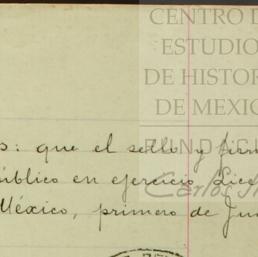 CENTRO D
ESTUDIO
DE HISTOR
DE MEXIC
FUNDACIÓ
Carlos S
s: que el sello y firm
úblico en ejercicio Lice
México, primero de Ju